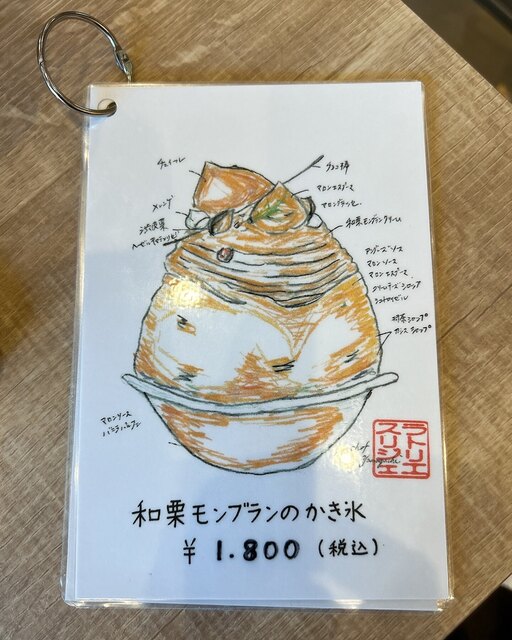 チュイール
チョコ棒
マロンエスプーマ
マロングラッセ
メレンゲ
渋皮栗
和栗モンブランクリーム
アングレーズソース
マロンソース
マロンエスプーマ
クリームチーズシロップ
シュトロイゼル
ガンス シロップ
マロンソース
ラトリエ
スリジェ
和栗モンブランのかき氷
¥1.800(税込)